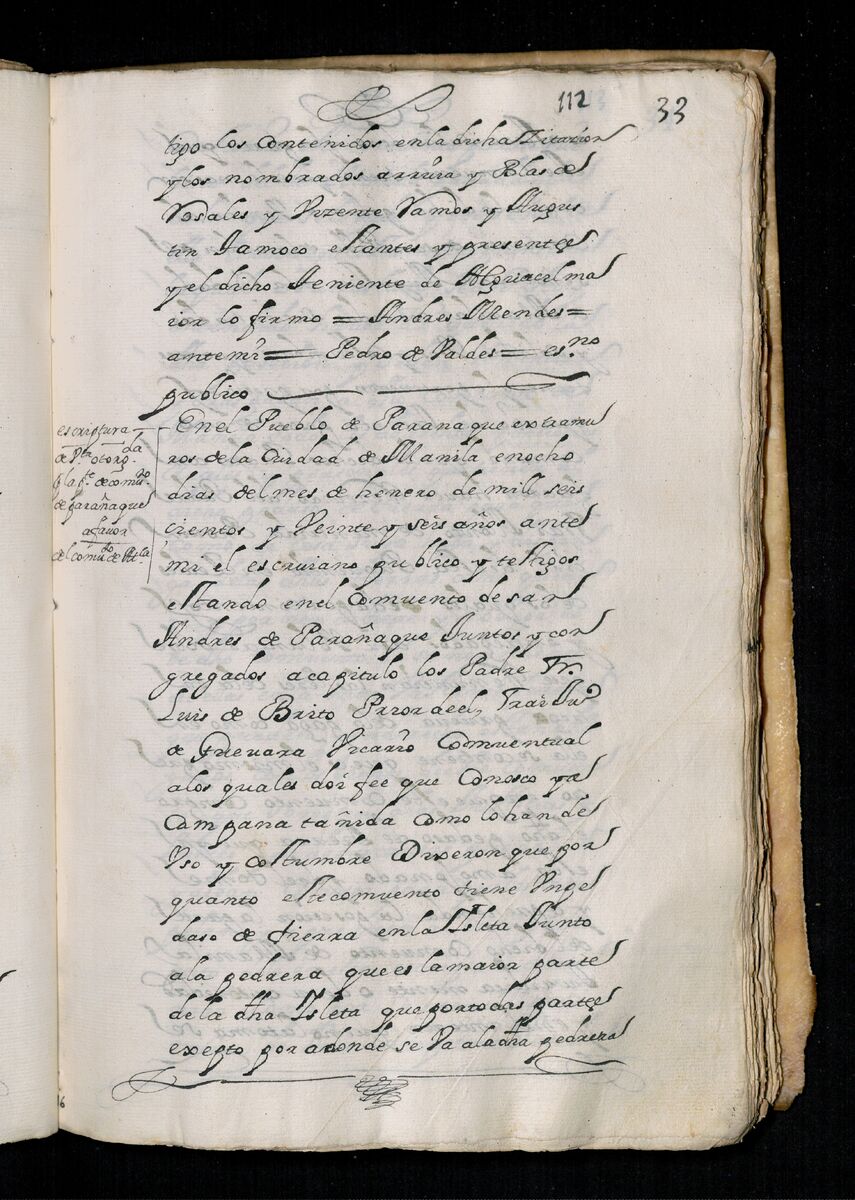 112 33
tigo los contenidos en la dicha Zitazion
y los nombrados arriua y Blas de
Rosales y Vizente Ramos y Augus
tin Jamoco estantes y presentes
y el dicho Teniente de Alguacil ma
ior lo firmo = Andres Mendes =
ante mi = Pedro de Valdes = es.no
publico
escriptura
de otorg.da
de comu.to
de Parañaque
a fauor
del comu.to de
En el Pueblo de Paranaque extramu
ros de la Ciudad de Manila en ocho
dias del mes de henero de mill seis
cientos y Veinte y seis años ante
mi el escruiano publico y testigos
estando en el Comuento de san
Andres de Parañaque Juntos y con
gregados a capitulo los Padre Fr.
Luis de Brito Prior deel, Frai Ju.o
de Gueuara Vicario Comuentual
a los quales doi fee que Conosco y a
Campana tañida como lo han de
Vso y costumbre Dixeron que por
quanto este comuento tiene Vn pe
daso de tierra en la Isleta Junto
a la pedrera que es la maior parte
de la dha Isleta que por todas partes
exepto por a donde se Va a la dha pedrera